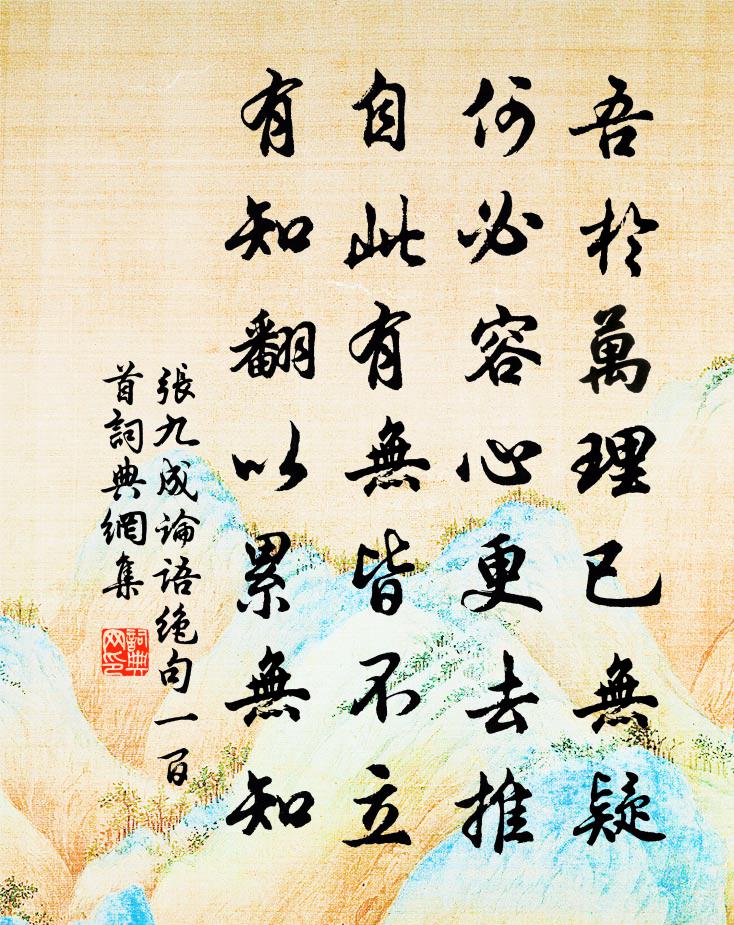 吾於萬理已無疑
何必容心更去推
自此有無皆不立
有知翻以累無知
張九成論語絶句一百
首詞典網集
詞典網印